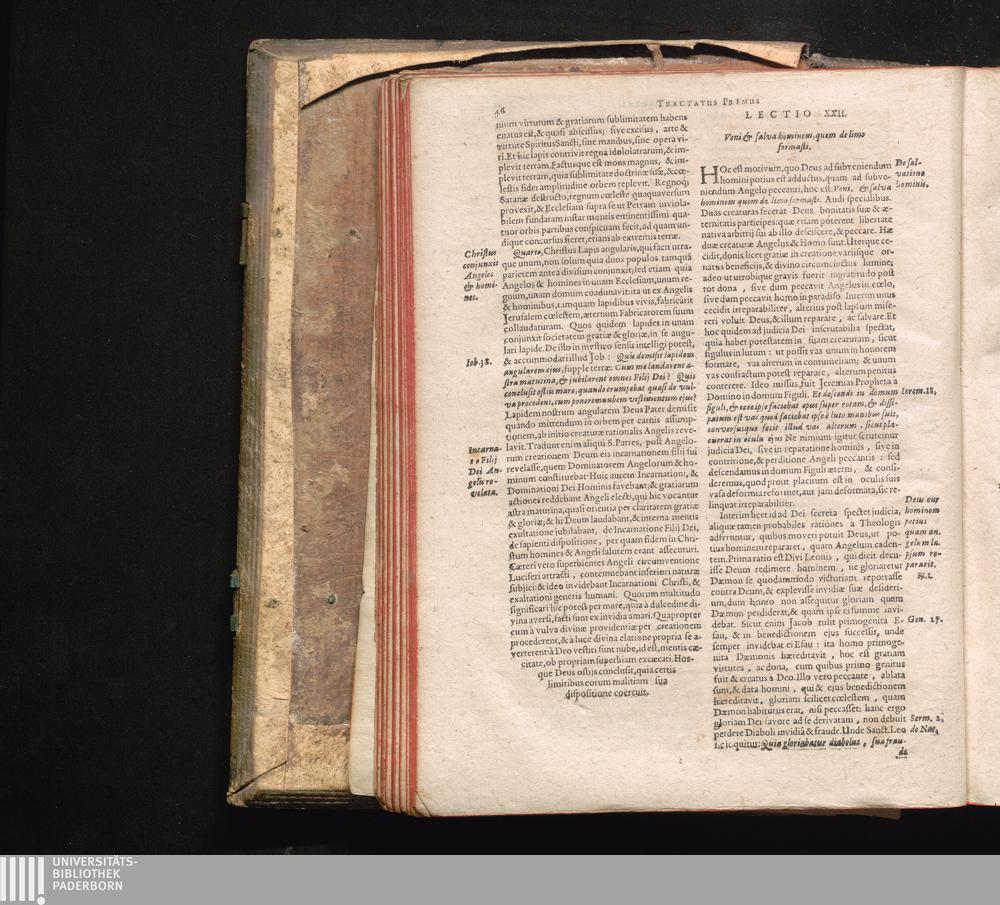 46
TRACTATUS PRIMUS
nium virtutum & gratiarum sublimitatem habens
enatus est, & quasi abscissus; sive excisus, arte &
virtute Spiritus Sancti, sine manibus, sine opera vi-
ri. Et hic lapis contrivit regna idololatrarum, & im-
plevit terram. Factusque est mons magnus, & im-
plevit terram, quia sublimitate doctrinæ suæ, & cœ-
lestis fidei amplitudine orbem replevit. Regnoq;
Satanæ destructo, regnum cœleste quaquaversum
provexit, & Ecclesiam supra se ut Petram inviola-
bilem fundatam instar montis eminentissimi qua-
tuor orbis partibus conspicuam fecit, ad quam un-
dique concursus fieret, etiam ab extremis terræ.
Christus
conjunxit
Angelos
& homi-
nes.
Quarto, Christus Lapis angularis, qui facit utra-
que unum, non solum quia duos populos tamquã
parietem antea divisum conjunxit; sed etiam quia
Angelos & homines in unam Ecclesiam, unum re-
gnum, unam domum coadunavit: ita ut ex Angelis
& hominibus, tamquam lapidibus vivis, fabricarit
Jerusalem cœlestem, æternum Fabricatorem suum
collaudaturam. Quos quidem lapides in unam
conjunxit societatem gratiæ & gloriæ, in se angu-
lari lapide. De illo in mystico sensu intelligi potest,
Iob. 38.
& accommodari illud Job: Quis demisit lapidem
angularem ejus, supple terræ: Cum me laudarent a-
stra matutina, & jubilarent omnes Filij Dei? Quis
conclusit ostiis mare, quando erumpebat quasi de vul-
va procedens, cum ponerem nubem vestimentum ejus?
Lapidem nostrum angularem Deus Pater demisit
quando mittendum in orbem per carnis assump-
tionem, ab initio creaturæ rationalis Angelis reve-
Incarna-
tio Filij
Dei An-
gelis re-
velata.
lavit. Tradunt enim aliqui S. Patres, post Angelo-
rum creationem Deum eis incarnationem filij sui
revelasse, quem Dominatorem Angelorum & ho-
minum constituebat. Huic autem Incarnationi, &
Dominationi Dei Hominis favebant; & gratiarum
actiones reddebant Angeli electi, qui hic vocantur
astra matutina, quasi orientia per claritatem gratiæ
& gloriæ; & hi Deum laudabant, & interna mentis
exultatione jubilabant, de Incarnatione Filij Dei,
de sapienti dispositione, per quam fidem in Chri-
stum homines & Angeli salutem erant assecuturi.
Cæteri vero superbientes Angeli circumventione
Luciferi attracti, contemnebant inferiori naturæ
subjici: & ideo invidebant Incarnationi Christi, &
exaltationi generis humani. Quorum multitudo
significari hic potest per mare, quia à dulcedine di-
vina aversi, facti sunt ex invidia amari. Quapropter
cum à vulva divinæ providentiæ per creationem
procederent, & à luce divina elatione propria se a-
verterent: à Deo vestiti sunt nube, id est, mentis cæ-
citate, ob propriam superbiam excæcati. Hos-
que Deus ostijs conclusit, quia certis
limitibus eorum malitiam sua
dispositione coercuit.
LECTIO XXII.
Veni & salva hominem, quem de limo
formasti.
De sal-
vatione
hominis.
HOc est motivum, quo Deus ad subveniendum
homini potius est adductus, quam ad subve-
niendum Angelo peccanti, hoc est. Veni, & salva
hominem quem de limo formasti. Audi specialibus.
Duas creaturas fecerat Deus bonitatis suæ & æ-
ternitatis participes: quæ etiam poterent libertate
nativa arbitrij sui ab illo desciscere, & peccare. Hæ
duæ creaturæ Angelus & Homo sunt. Uterque ce-
cidit, donis licet gratiæ in creatione varijsque or-
natus beneficijs, & divino circumcinctus lumine;
adeo ut utrobique gravis fuerit ingratitudo post
tot dona, sive dum peccavit Angelus in cœlo,
sive dum peccavit homo in paradiso. Interim unus
cecidit irreparabiliter, alterius post lapsum mise-
reri voluit Deus, & illum reparare, ac salvare. Et
hoc quidem ad judicia Dei inscrutabilia spectat,
quia habet potestatem in suam creaturam, sicut
figulus in lutum: ut possit vas unum in honorem
formare, vas alterum in contumeliam; & unum
vas confractum potest reparare, alterum penitus
conterere. Ideo missus fuit Jeremias Propheta à
Ierem. 18.
Domino in domum Figuli. Et descendi in domum
figuli, & ecce ipse faciebat opus super rotam, & dissi-
patum est vas quod faciebat ipse è luto manibus suis,
conversusque fecit illud vas alterum, sicut pla-
cuerat in oculis ejus Ne nimium igitur scrutemur
judicia Dei, sive in reparatione hominis, sive in
contritione, & perditione Angeli peccantis: sed
descendamus in domum Figuli æterni, & consi-
deremus, quod prout placitum est in oculis suis
vasa deformia reformet, aut jam deformata, sic re-
linquat irreparabiliter.
Deus cur
hominem
potius
quam an-
gelum la-
psum re-
pararit.
Interim licet id ad Dei secreta spectet judicia,
aliquæ tamen probabiles rationes à Theologis
adferuntur, quibus moveri potuit Deus, ut po-
tius hominem repararet, quam Angelum caden-
tem. Prima ratio est Divi Leonis, qui dicit decu-
isse Deum redimere hominem, ne gloriaretur
Dæmon se quodammodo victoriam reportasse
contra Deum, & explevisse invidiæ suæ desideri-
um, dum homo non assequitur gloriam quam
Dæmon perdiderat, & quam ipse ei summe invi-
Gen. 27.
debat. Sicut enim Jacob tulit primogenita E-
sau, & in benedictionem ejus successit, unde
semper invidebat ei Esau: ita homo primoge-
nita Dæmonis hæreditavit, hoc est gratiam
virtutes, ac dona, cum quibus primo genitus
fuit & creatus à Deo. Illo vero peccante, ablata
sunt, & data homini, qui & ejus benedictionem
hæreditavit, gloriam scilicet cœlestem, quam
Dæmon habiturus erat, nisi peccasset: hanc ergo
Serm. 2.
de Nat.
gloriam Dei favore ad se derivatam, non debuit
perdere Diaboli invidiâ & fraude. Unde Sanct. Leo
sic loquitur: Quia gloriabatur diabolus, sua frau-
de
UNIVERSITÄTS-
BIBLIOTHEK
PADERBORN